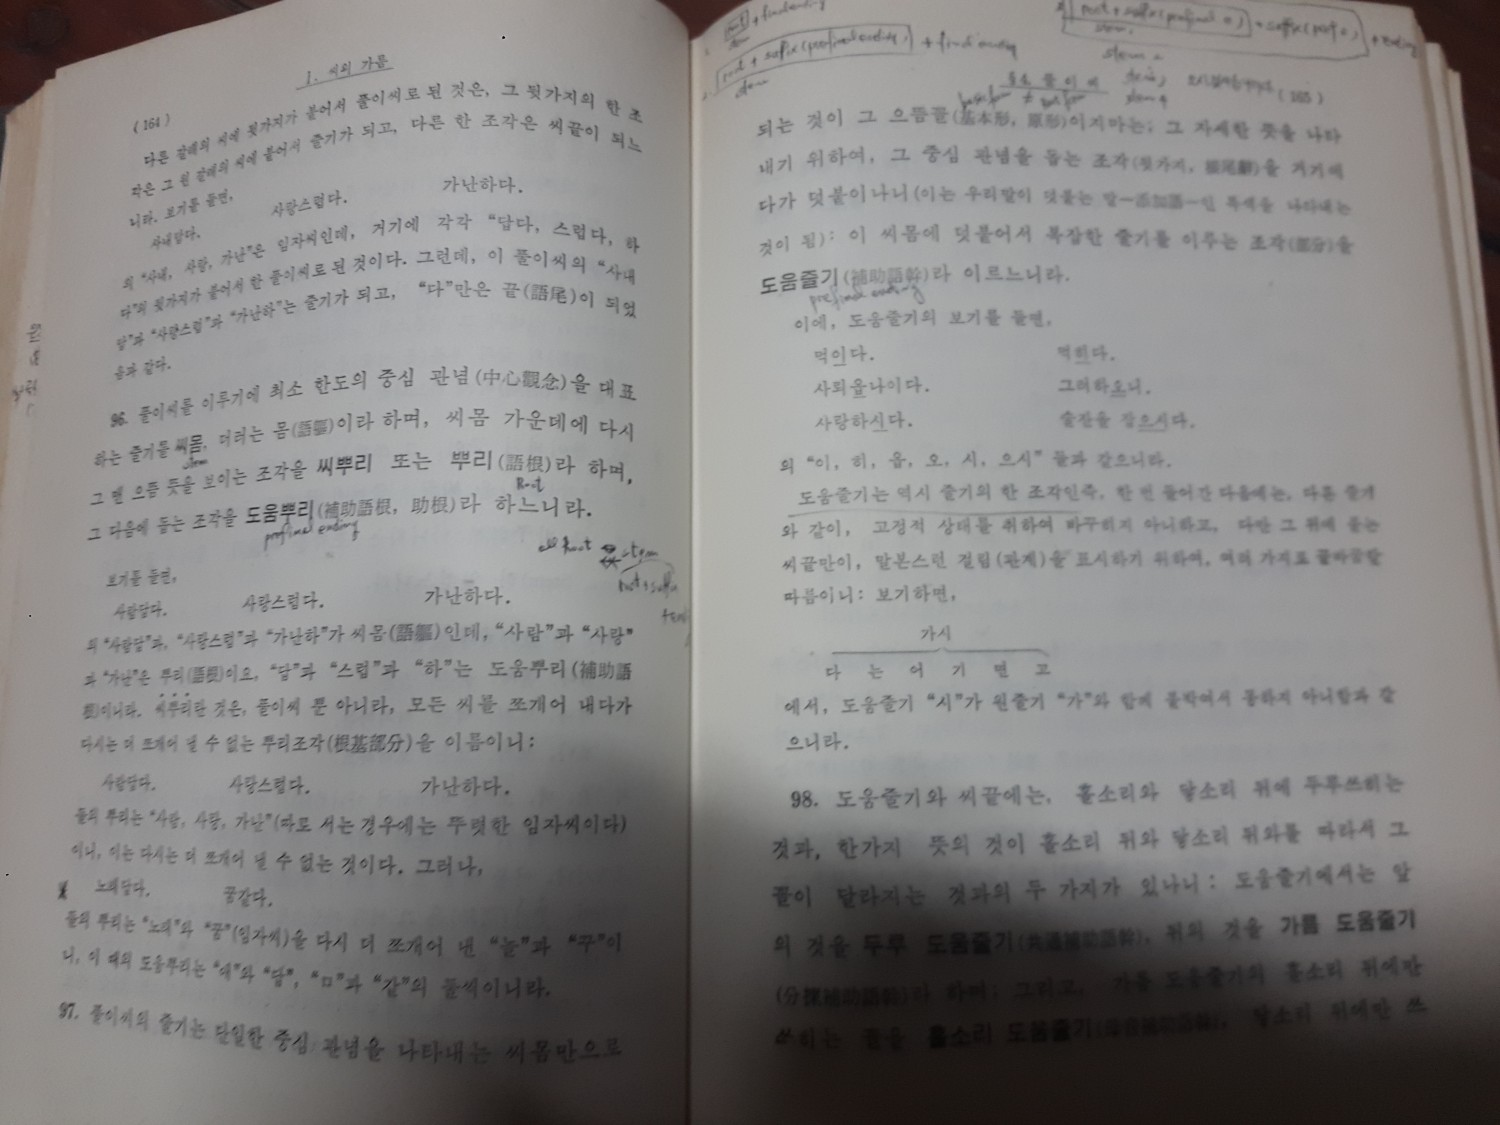 1. 씨의 가름
(164)
다른 갈래의 씨에 뒷가지가 붙어서 풀이씨로 된 것은, 그 뒷가지의 한 조
각은 그 원 갈래의 씨에 붙어서 줄기가 되고, 다른 한 조각은 씨끝이 되느
니라. 보기를 들면,
사내답다. 사랑스럽다. 가난하다.
의 “사내, 사랑, 가난”은 임자씨인데, 거기에 각각 “답다, 스럽다, 하
다”의 뒷가지가 붙어서 한 풀이씨로 된 것이다. 그런데, 이 풀이씨의 “사내
답”과 “사랑스럽”과 “가난하”는 줄기가 되고, “다”만은 끝(語尾)이 되었
음과 같다.
96. 풀이씨를 이루기에 최소 한도의 중심 관념(中心觀念)을 대표
하는 줄기를 씨몸, 더러는 몸(語軀)이라 하며, 씨몸 가운데에 다시
stem
그 맨 으뜸 뜻을 보이는 조각을 씨뿌리 또는 뿌리(語根)라 하며,
Root
그 다음에 돕는 조각을 도움뿌리(補助語根, 助根)라 하느니라.
prefinal ending
보기를 들면,
사람답다. 사랑스럽다. 가난하다.
의 “사람답”과, “사랑스럽”과 “가난하”가 씨몸(語軀)인데, “사람”과 “사랑”
과 “가난”은 뿌리(語根)이요, “답”과 “스럽”과 “하”는 도움뿌리(補助語
根)이니라. 씨뿌리란 것은, 풀이씨 뿐 아니라, 모든 씨를 쪼개어 내다가
다시는 더 쪼개어 낼 수 없는 뿌리조각(根基部分)을 이름이니:
사람답다. 사랑스럽다. 가난하다.
들의 뿌리는 “사람, 사랑, 가난”(따로 서는 경우에는 뚜렷한 임자씨이다)
이니, 이는 다시는 더 쪼개어 낼 수 없는 것이다. 그러나,
노래답다. 꿈같다.
들의 뿌리는 “노래”와 “꿈”(임자씨)을 다시 더 쪼개어 낸 “놀”과 “꾸”이
니, 이 때의 도움뿌리는 “애”와 “답”, “ㅁ”과 “같”의 둘씩이니라.
97. 풀이씨의 줄기는 단일한 중심 관념을 나타내는 씨몸만으로
root + final ending
stem
root + suffix (prefinal ending) + final ending
stem
root + suffix (prefinal 0) + suffix (pref 0) + ending
(165)
되는 것이 그 으뜸꼴(基本形, 原形)이지마는; 그 자세한 뜻을 나타
내기 위하여, 그 중심 관념을 돕는 조각(뒷가지, 接尾辭)을 거기에
다가 덧붙이나니(이는 우리말이 덧붙는 말—添加語—인 특색을 나타내는
것이 됨): 이 씨몸에 덧붙어서 복잡한 줄기를 이루는 조각(部分)을
도움줄기(補助語幹)라 이르느니라.
prefinal ending
이에, 도움줄기의 보기를 들면,
먹이다. 먹히다.
사뢰옵나이다. 그러하오니.
사랑하시다. 술잔을 잡으시다.
의 “이, 히, 옵, 오, 시, 으시” 들과 같으니라.
도움줄기는 역시 줄기의 한 조각인즉, 한 번 들어간 다음에는, 다른 줄기
와 같이, 고정적 상태를 취하여 바꾸히지 아니하고, 다만 그 뒤에 돕는
씨끝만이, 말본스런 걸림(관계)을 표시하기 위하여, 여러 가지로 끝바꿈할
따름이니: 보기하면,
가시
다 는 어 기 면 고
에서, 도움줄기 “시”가 원줄기 “가”와 함께 들러서 통하지 아니함과 같
으니라.
98. 도움줄기와 씨끝에는, 홀소리와 닿소리 뒤에 두루쓰히는
것과, 한가지 뜻의 것이 홀소리 뒤와 닿소리 뒤와를 따라서 그
꼴이 달라지는 것과의 두 가지가 있나니: 도움줄기에서는 앞
의 것을 두루 도움줄기(共通補助語幹), 뒤의 것을 가름 도움줄기
(分揀補助語幹)라 하며; 그리고, 가름 도움줄기의 홀소리 뒤에만
쓰히는 꼴을 홀소리 도움줄기(母音補助語幹), 닿소리 뒤에만 쓰